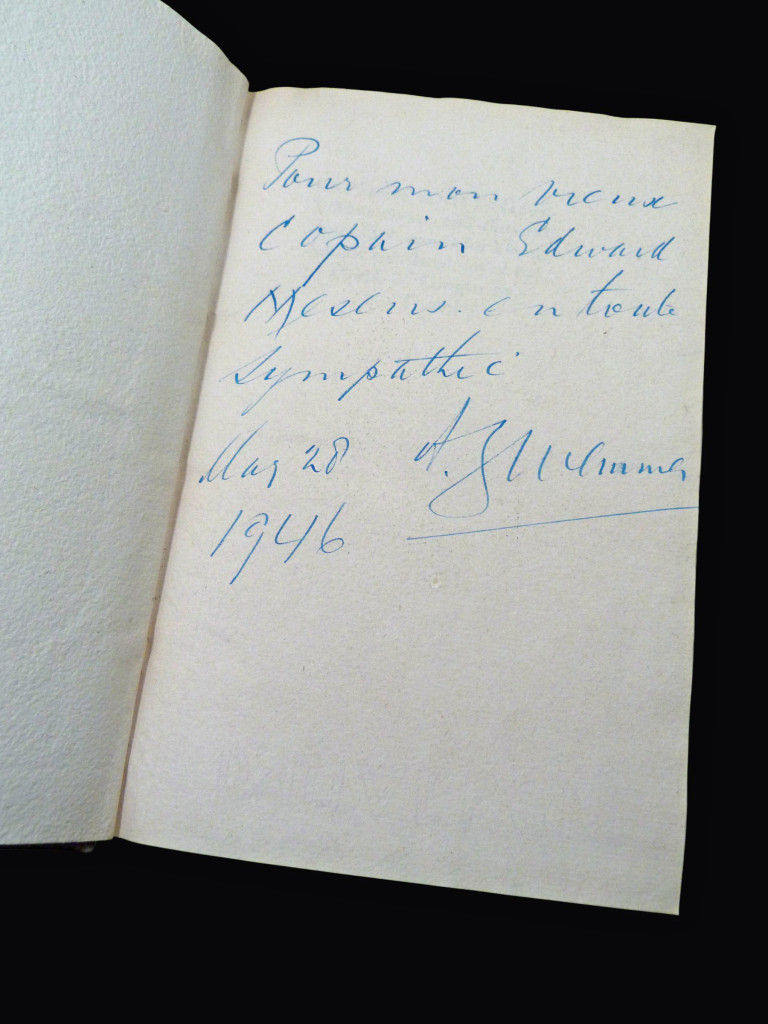 Pour mon vieux
copain Edward
Mesens. en toute
sympathie
May 28 A.
1946